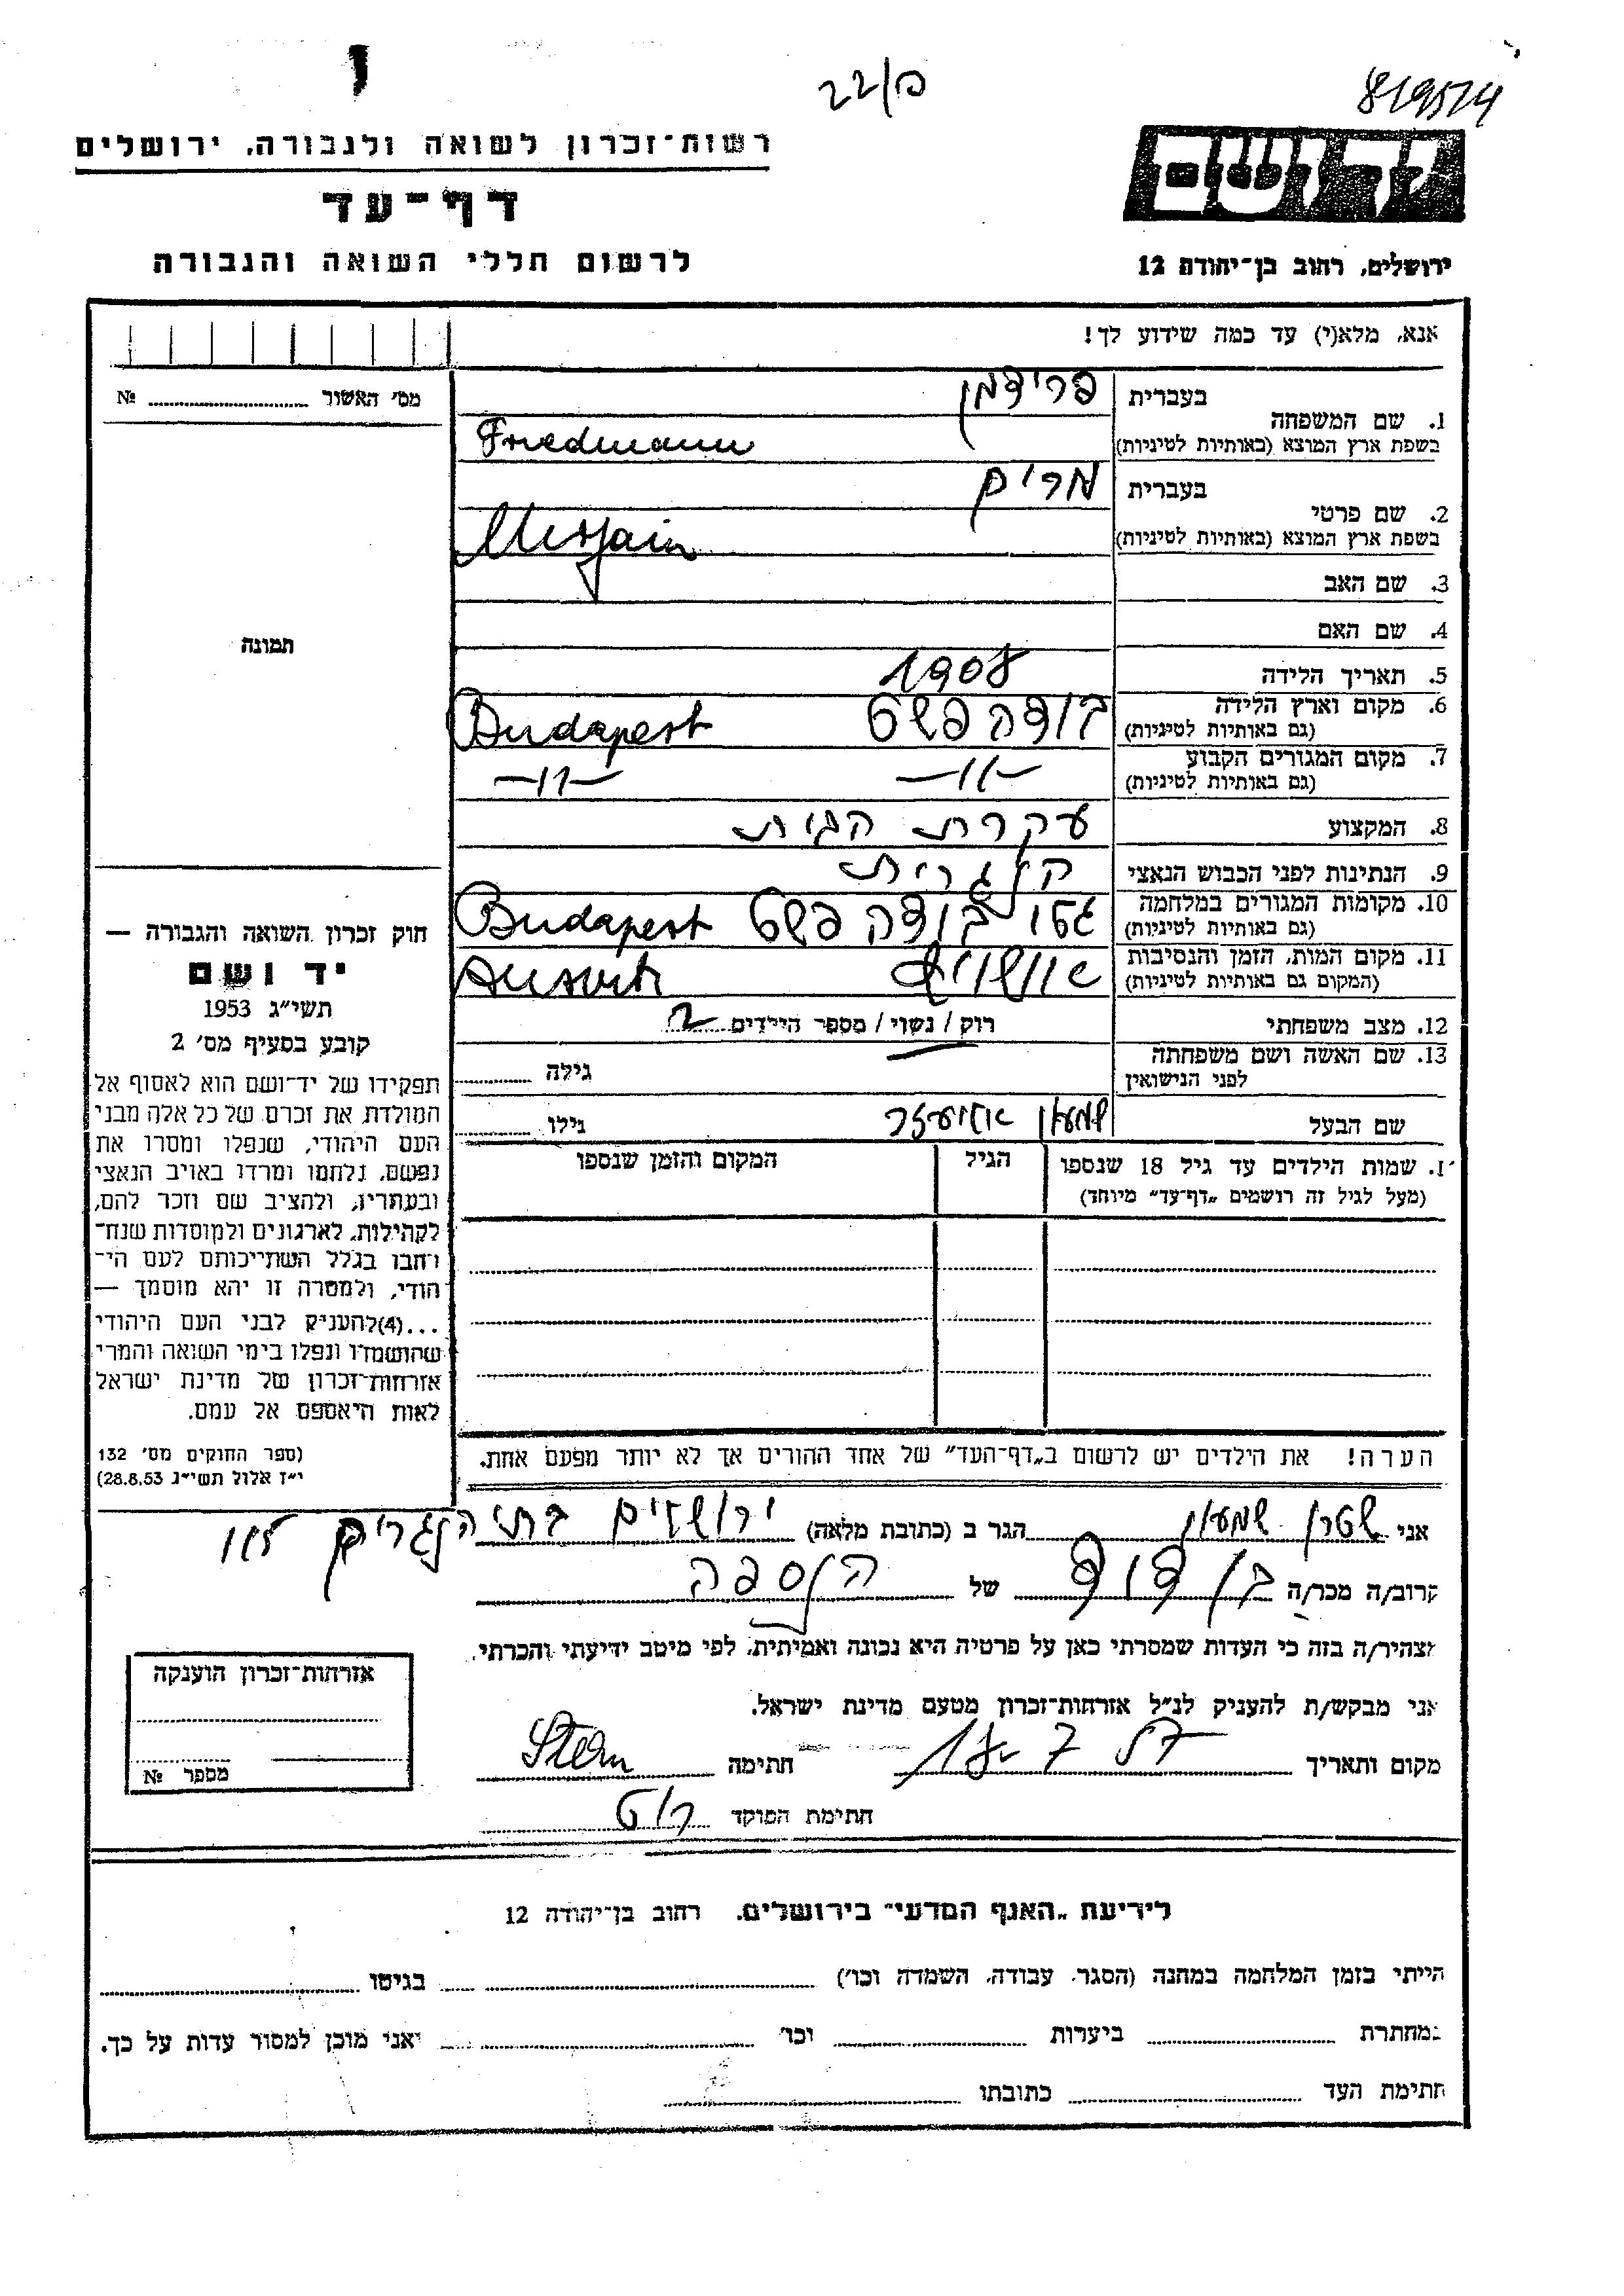 22/פ
819514
רשות־זכרון לשואה ולגבורה, ירושלים
דף־עד
לרשום חללי השואה והגבורה
יד ושם
ירושלים, רחוב בן־יהודה 12
אנא, מלא(י) עד כמה שידוע לך!
מס׳ האשור № ........
1. שם המשפחה
בעברית פרידמן
בשפת ארץ המוצא (באותיות לטיניות) Friedmann
2. שם פרטי
בעברית מרים
בשפת ארץ המוצא (באותיות לטיניות)
3. שם האב
4. שם האם
תמונה
5. תאריך הלידה 1908
6. מקום וארץ הלידה (גם באותיות לטיניות) בודהפשט Budapest
7. מקום המגורים הקבוע (גם באותיות לטיניות) —״— —״—
8. המקצוע עקרת הבית
9. הנתינות לפני הכבוש הנאצי הונגרית
10. מקומות המגורים במלחמה (גם באותיות לטיניות) גטו בודהפשט Budapest
11. מקום המות, הזמן והנסיבות (המקום גם באותיות לטיניות) אושויץ
12. מצב משפחתי רוק / נשוי / מספר הילדים 2
13. שם האשה ושם משפחתה לפני הנישואין גילה
שם הבעל שמעון גילו
שמות הילדים עד גיל 18 שנספו
(מעל לגיל זה רושמים „דף־עד״ מיוחד)
הגיל
המקום והזמן שנספו
הערה! את הילדים יש לרשום ב„דף־העד״ של אחד ההורים אך לא יותר מפעם אחת.
חוק זכרון השואה והגבורה —
יד ושם
תשי״ג 1953
קובע בסעיף מס׳ 2
תפקידו של יד־ושם הוא לאסוף אל
המולדת את זכרם של כל אלה מבני
העם היהודי, שנפלו ומסרו את
נפשם, נלחמו ומרדו באויב הנאצי
ובעוזריו, ולהציב שם וזכר להם,
לקהילות, לארגונים ולמוסדות שנח־
רבו בגלל השתייכותם לעם הי־
הודי, ולמטרה זו יהא מוסמך —
...(4)להעניק לבני העם היהודי
שהושמדו ונפלו בימי השואה והמרי
אזרחות־זכרון של מדינת ישראל
לאות היאספם אל עמם.
(ספר החוקים מס׳ 132
י״ז אלול תשי״ג 28.8.53)
אני שטרן שמעון הגר ב (כתובת מלאה) ירושלים בתי הונגרים
קרוב/ה מכר/ה בן דוד של הנספה
מצהיר/ה בזה כי העדות שמסרתי כאן על פרטיה היא נכונה ואמיתית, לפי מיטב ידיעתי והכרתי.
אני מבקש/ת להעניק לנ״ל אזרחות־זכרון מטעם מדינת ישראל.
מקום ותאריך חתימה Stern
חתימת הפוקד
אזרחות־זכרון הוענקה
מספר №
לידיעת „האגף המדעי״ בירושלים, רחוב בן־יהודה 12
הייתי בזמן המלחמה במחנה (הסגר, עבודה, השמדה וכו׳) ........ בגיטו ........
במחתרת ........ ביערות ........ וכו׳ ........ ואני מוכן למסור עדות על כך.
חתימת העד ........ כתובתו ........